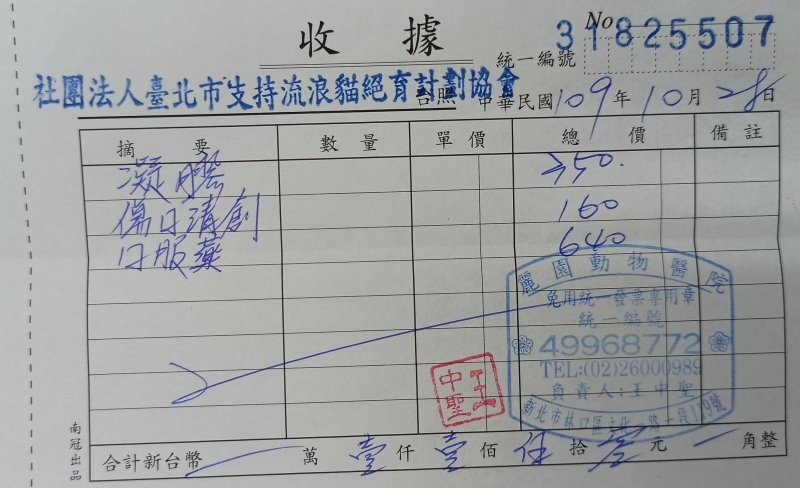 收據
No
31825507
統一編號
社團法人臺北市支持流浪貓絕育計劃協會
台照 中華民國109年10月28日
摘要 數量 單價 總價 備註
凝膠 350.
傷口清創 160
口服藥 640
麗園動物醫院
免用統一發票專用章
統一編號
49968772
TEL:(02)26000989
負責人:王中聖
新北市林口區文化一路一段119號
王中聖
合計新台幣 萬壹仟壹佰伍拾零元 角整
南冠出品